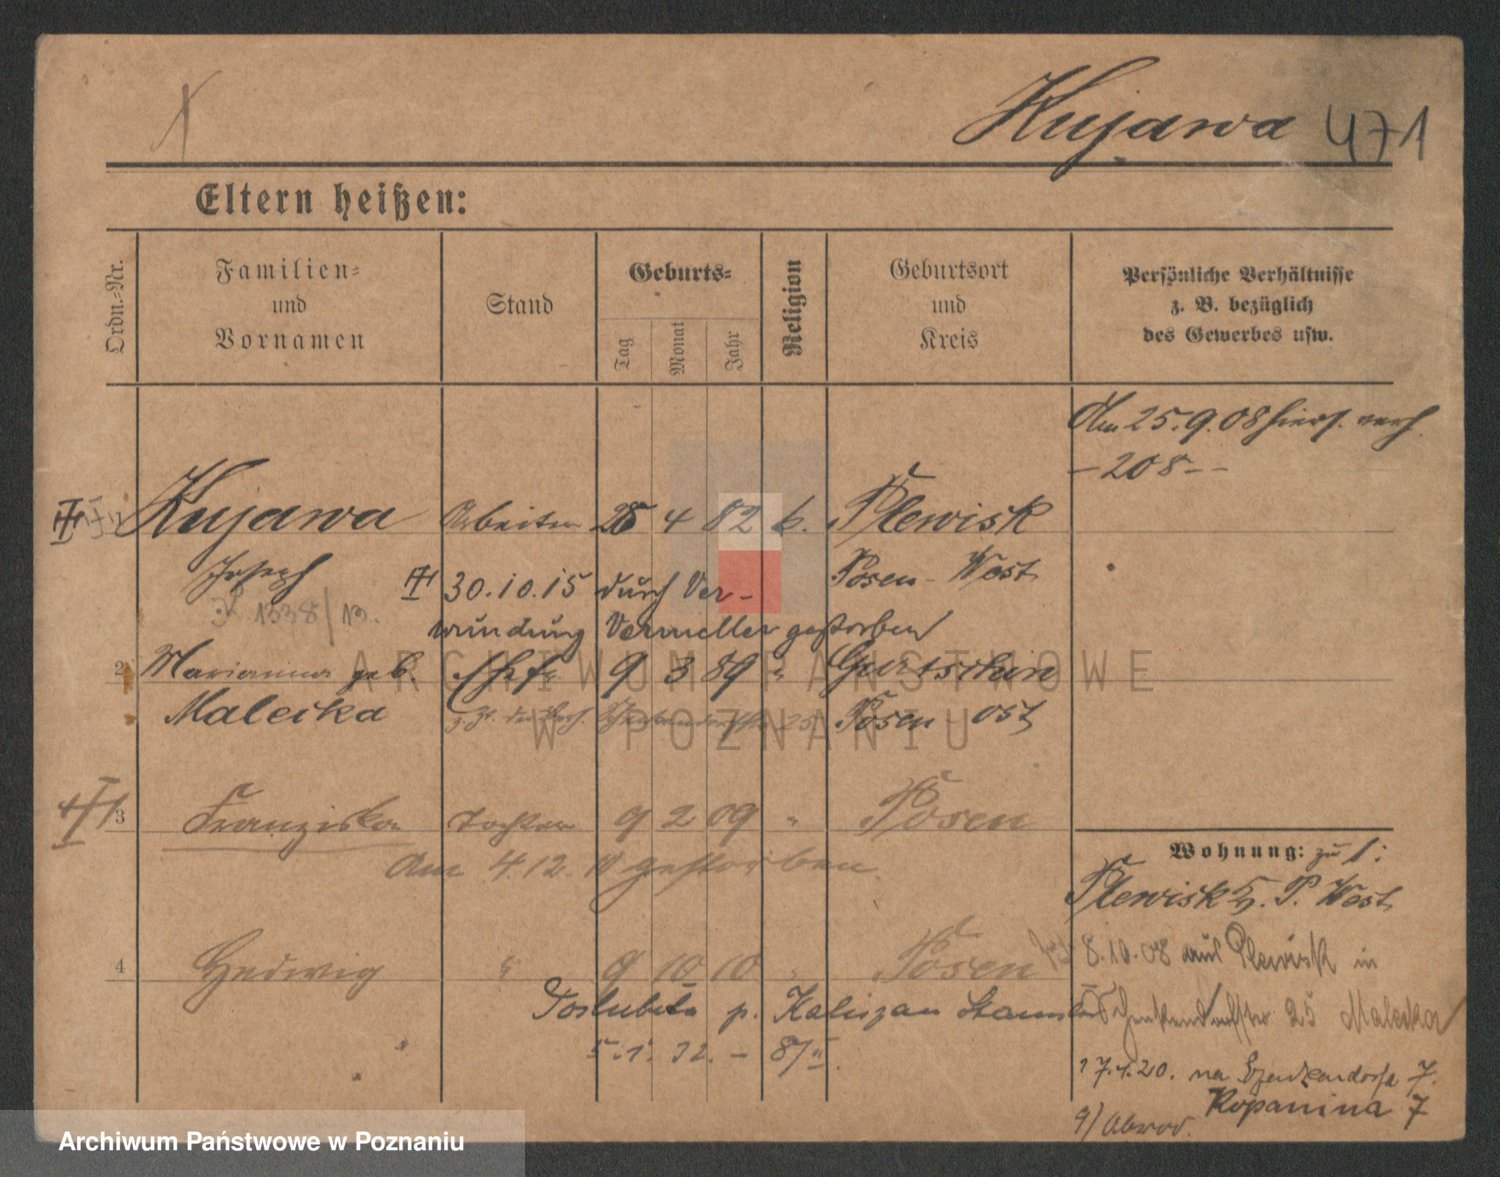 Kujawa 471
Eltern heißen:
Ordn.-Nr.
Familien-
und
Vornamen
Stand
Geburts-
Tag
Monat
Jahr
Religion
Geburtsort
und
Kreis
Persönliche Verhältnisse
z. B. bezüglich
des Gewerbes usw.
Am 25.9.08 hiers. verh.
- 208 -
Kujawa Arbeiter 4 82 k. Plewisk
Joseph 30.10.15 durch Ver- Posen-West
1538/13.
wundung Vermelles gestorben
2 Marianna geb. Ehefr. 9 3 89 " Gurtschin
Malecka 25 Posen-Ost
3 Franziska Tochter 9 2 09 " Posen
Am 4.12. gestorben.
Wohnung: zu 1:
Plewisk P. West
4 Hedwig " 9 10 10 " Posen
8.10.08 aus Plewisk in
25 Malecka
Poślubiła p. Kaliszan
5.1.32. - 87/II.
17.1.20. na 7.
Kopanina 7
Archiwum Państwowe w Poznaniu
ARCHIWUM PAŃSTWOWE
W POZNANIU